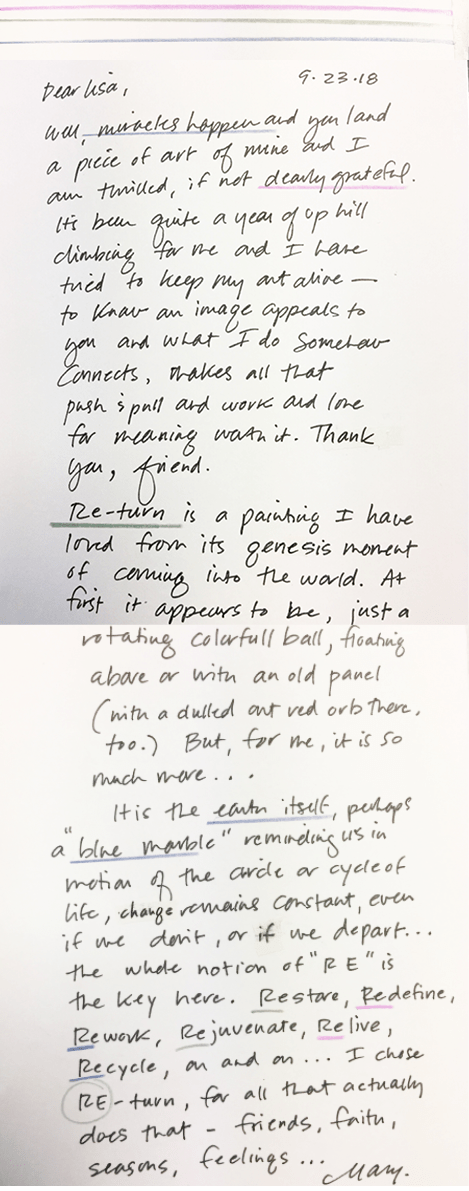 Dear Lisa,
9.23.18
Well, miracles happen and you land
a piece of art of mine and I
am thrilled, if not dearly grateful.
It's been quite a year of up hill
climbing for me and I have
tried to keep my art alive —
to know an image appeals to
you and what I do somehow
connects, makes all that
push & pull and work and love
for meaning worth it. Thank
you, friend.
Re-turn is a painting I have
loved from its genesis moment
of coming into the world. At
first it appears to be, just a
rotating colorfull ball, floating
above or with an old panel
(with a dulled out red orb there,
too.) But, for me, it is so
much more...
It is the earth itself, perhaps
a "blue marble" reminding us in
motion of the circle or cycle of
life, change remains constant, even
if we don't, or if we depart...
the whole notion of "RE" is
the key here. Restore, Redefine,
Rework, Rejuvenate, Relive,
Recycle, on and on... I chose
RE-turn, for all that actually
does that – friends, faith,
seasons, feelings...
Mary.